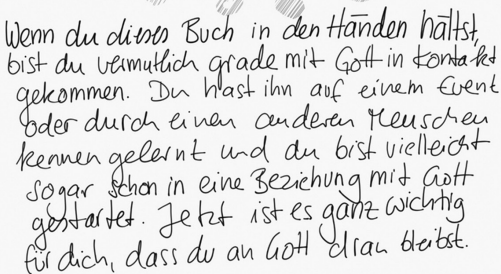 Wenn du dieses Buch in den Händen hältst,
bist du vermutlich grade mit Gott in Kontakt
gekommen. Du hast ihn auf einem Event
oder durch einen anderen Menschen
kennen gelernt und du bist vielleicht
sogar schon in eine Beziehung mit Gott
gestartet. Jetzt ist es ganz wichtig
für dich, dass du an Gott dran bleibst.